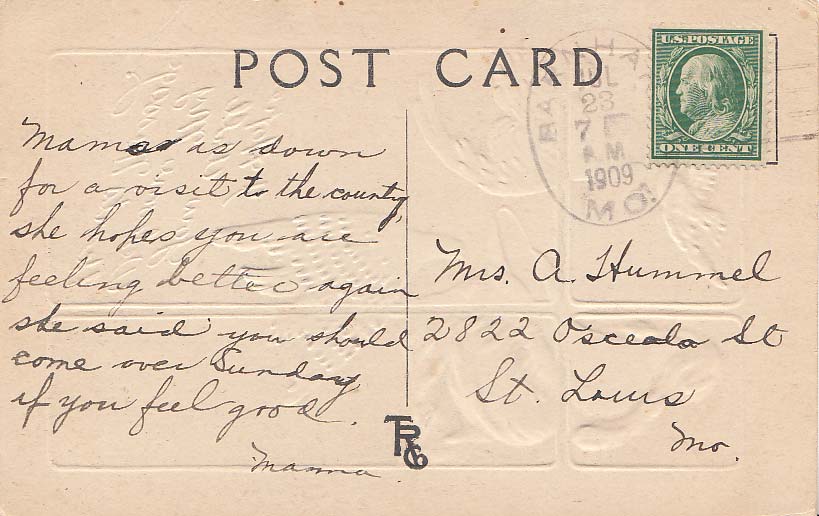 POST CARD
U.S. POSTAGE
ONE CENT
JUL
23
7
A.M
1909
MO.
Mama is down
for a visit to the county,
she hopes you are
feeling better again
she said you should
come over Sunday
if you feel good.
Mrs. A. Hummel
2822 Osceola St
St. Louis
Mo.